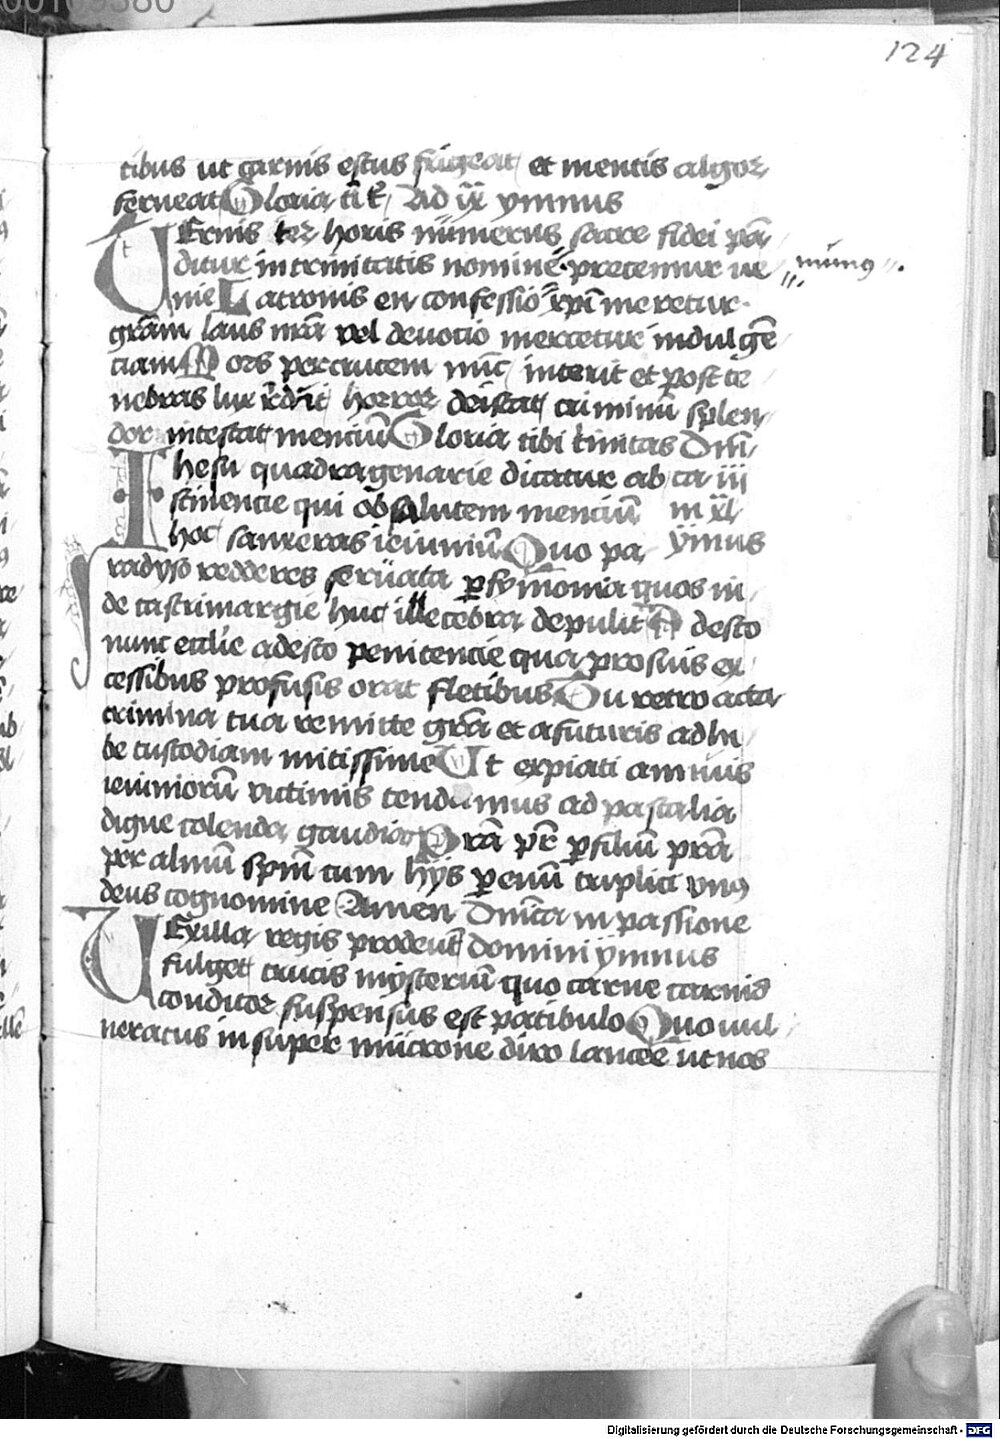 124
tibus ut carnis estus frigeat et mentis algor
ferueat Gloria t̄ t͛ Ad ix ymnus
TErnis ter horis numerus sacre fidei pā
ditur in trinitatis nomine precemur ue munus
nie Latronis en confessio xp̄i meretur
gr̄am laus nr̄a vel deuotio mercetur indulgē
ciam Mors per crucem nūc interit et post te
nebras lux r̄d̄it horror dehiscat criminū splen
dor intestat mencium Gloria tibi trinitas Dn̄i
IHesu quadragenarie dicatur ab ca iii
stinencie qui ob salutem menciū in xl
hoc sanxeras ieiuniū Quo pa ymus
radyso redderes seruata ꝑsymonia quos in
de castrimargie huc illecebra depulit Adesto
nunc ecclīe adesto penitencie qua pro suis ex
cessibus profusis orat fletibus Tu retro acta
crimina tua remitte gr̄a et a futuris adhi
be custodiam mitissime Ut expiati annuis
ieiuniorū victimis tendamus ad pascalia
digne colenda gaudia Pr̄a pr̄ ꝑ filiū pr̄a
per almū sp̄m cum hys ꝑ euū triplici vnꝯ
deus cognomine Amen Dn̄ica in passione
VExilla regis prodeūt domini ymnus
fulget crucis mysteriū quo carne carnis
conditor suspensus est patibulo Quo uul
neratus in super mucrone diro lancee ut nos
Digitalisierung gefördert durch die Deutsche Forschungsgemeinschaft - DFG